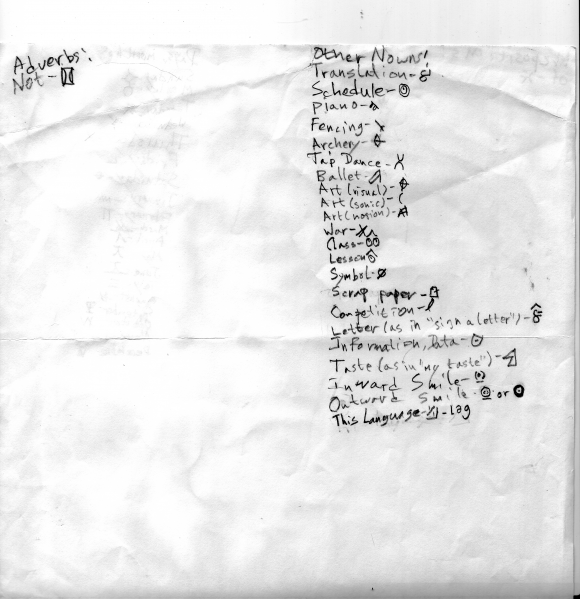 Adverbs:
Not -
Other Nowns:
Translation -
Schedule -
Piano -
Fencing -
Archery -
Tap Dance -
Ballet -
Art (visual) -
Art (sonic) -
Art (motion) -
War -
Class -
Lesson
Symbol -
Scrap paper -
Competition -
Letter (as in "sign a letter") -
Information, Data -
Taste (as in "my taste") -
Inward Smile -
Outward Smile - or
This Language - - log